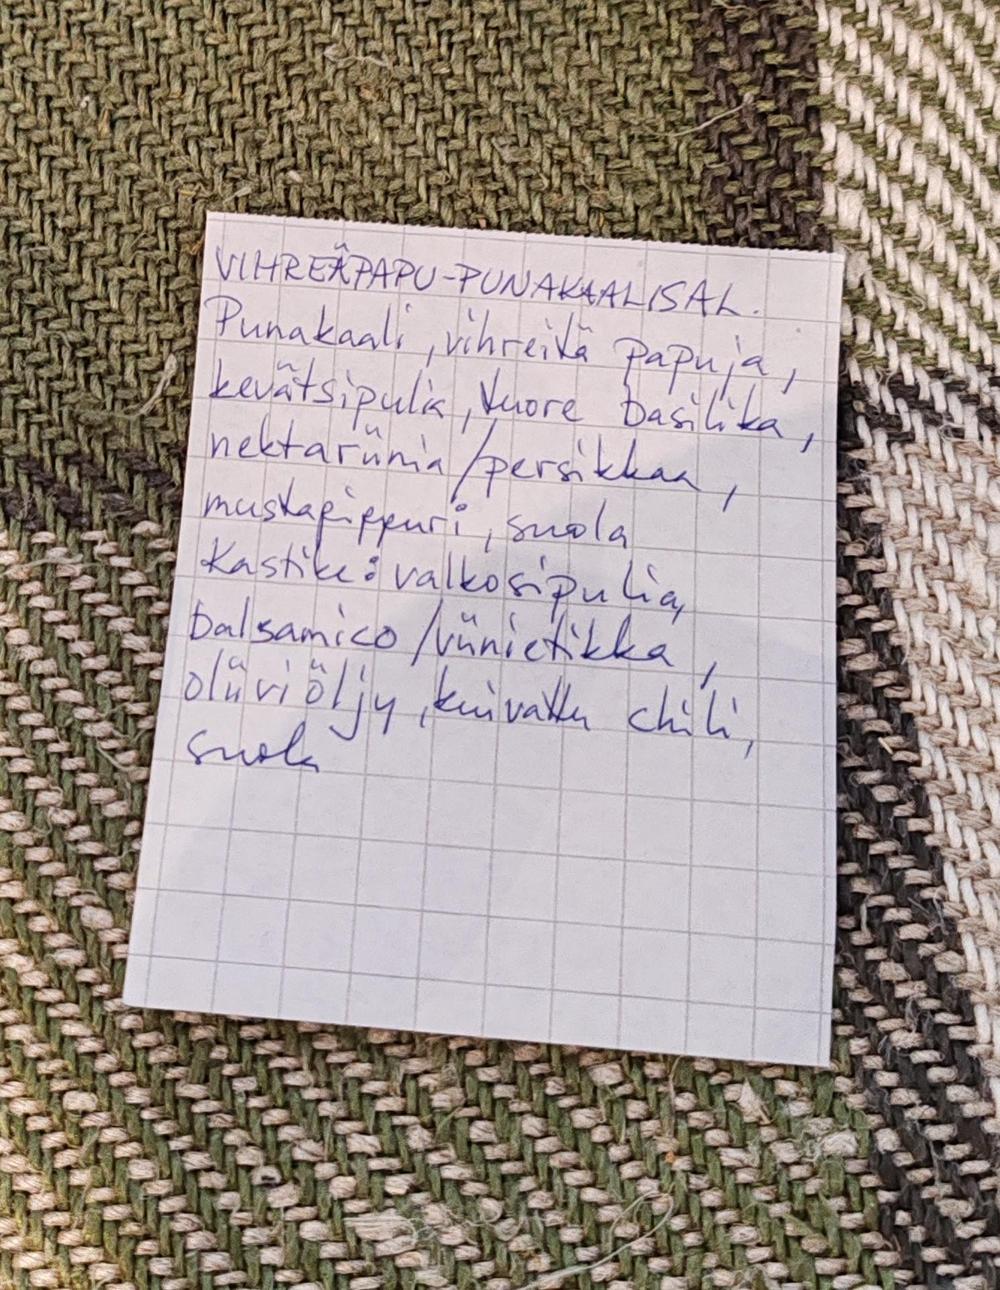 VIHREÄPAPU-PUNAKAALISAL.
Punakaali, vihreitä papuja,
kevätsipulia, tuore basilika,
nektariinia/persikkaa,
mustapippuri, suola
Kastike: valkosipulia,
balsamico/viinietikka,
oliiviöljy, kuivattu chili,
suola